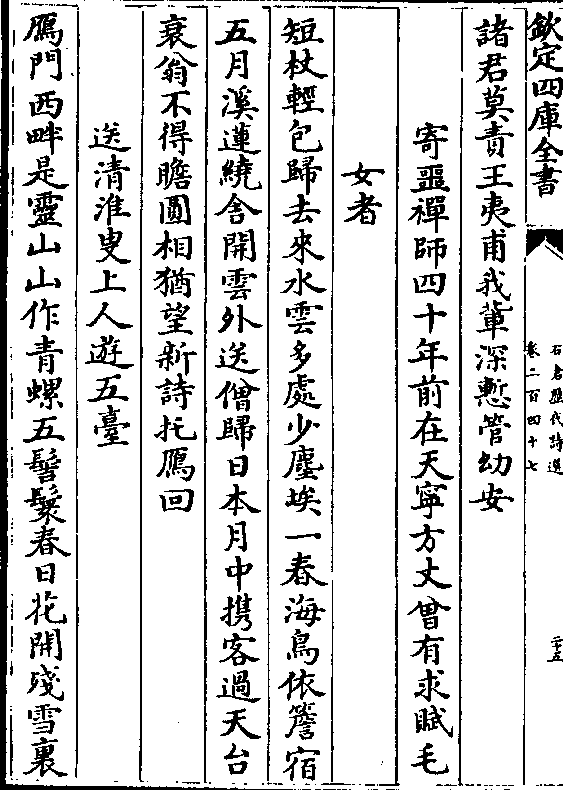 欽定四庫全書
石倉歷代詩選
卷二百四十七
二十五
諸君莫責王夷甫我輩深慙管幼安
寄噩禪師四十年前在天寧方丈曾有求賦毛
女者
短杖輕包歸去來水雲多處少塵埃一春海鳥依簷宿
五月溪蓮繞舍開雲外送僧歸日本月中携客過天台
衰翁不得瞻圓相猶望新詩托鴈回
送清淮叟上人遊五臺
鴈門西畔是靈山山作青螺五髻鬟春日花開殘雪裏